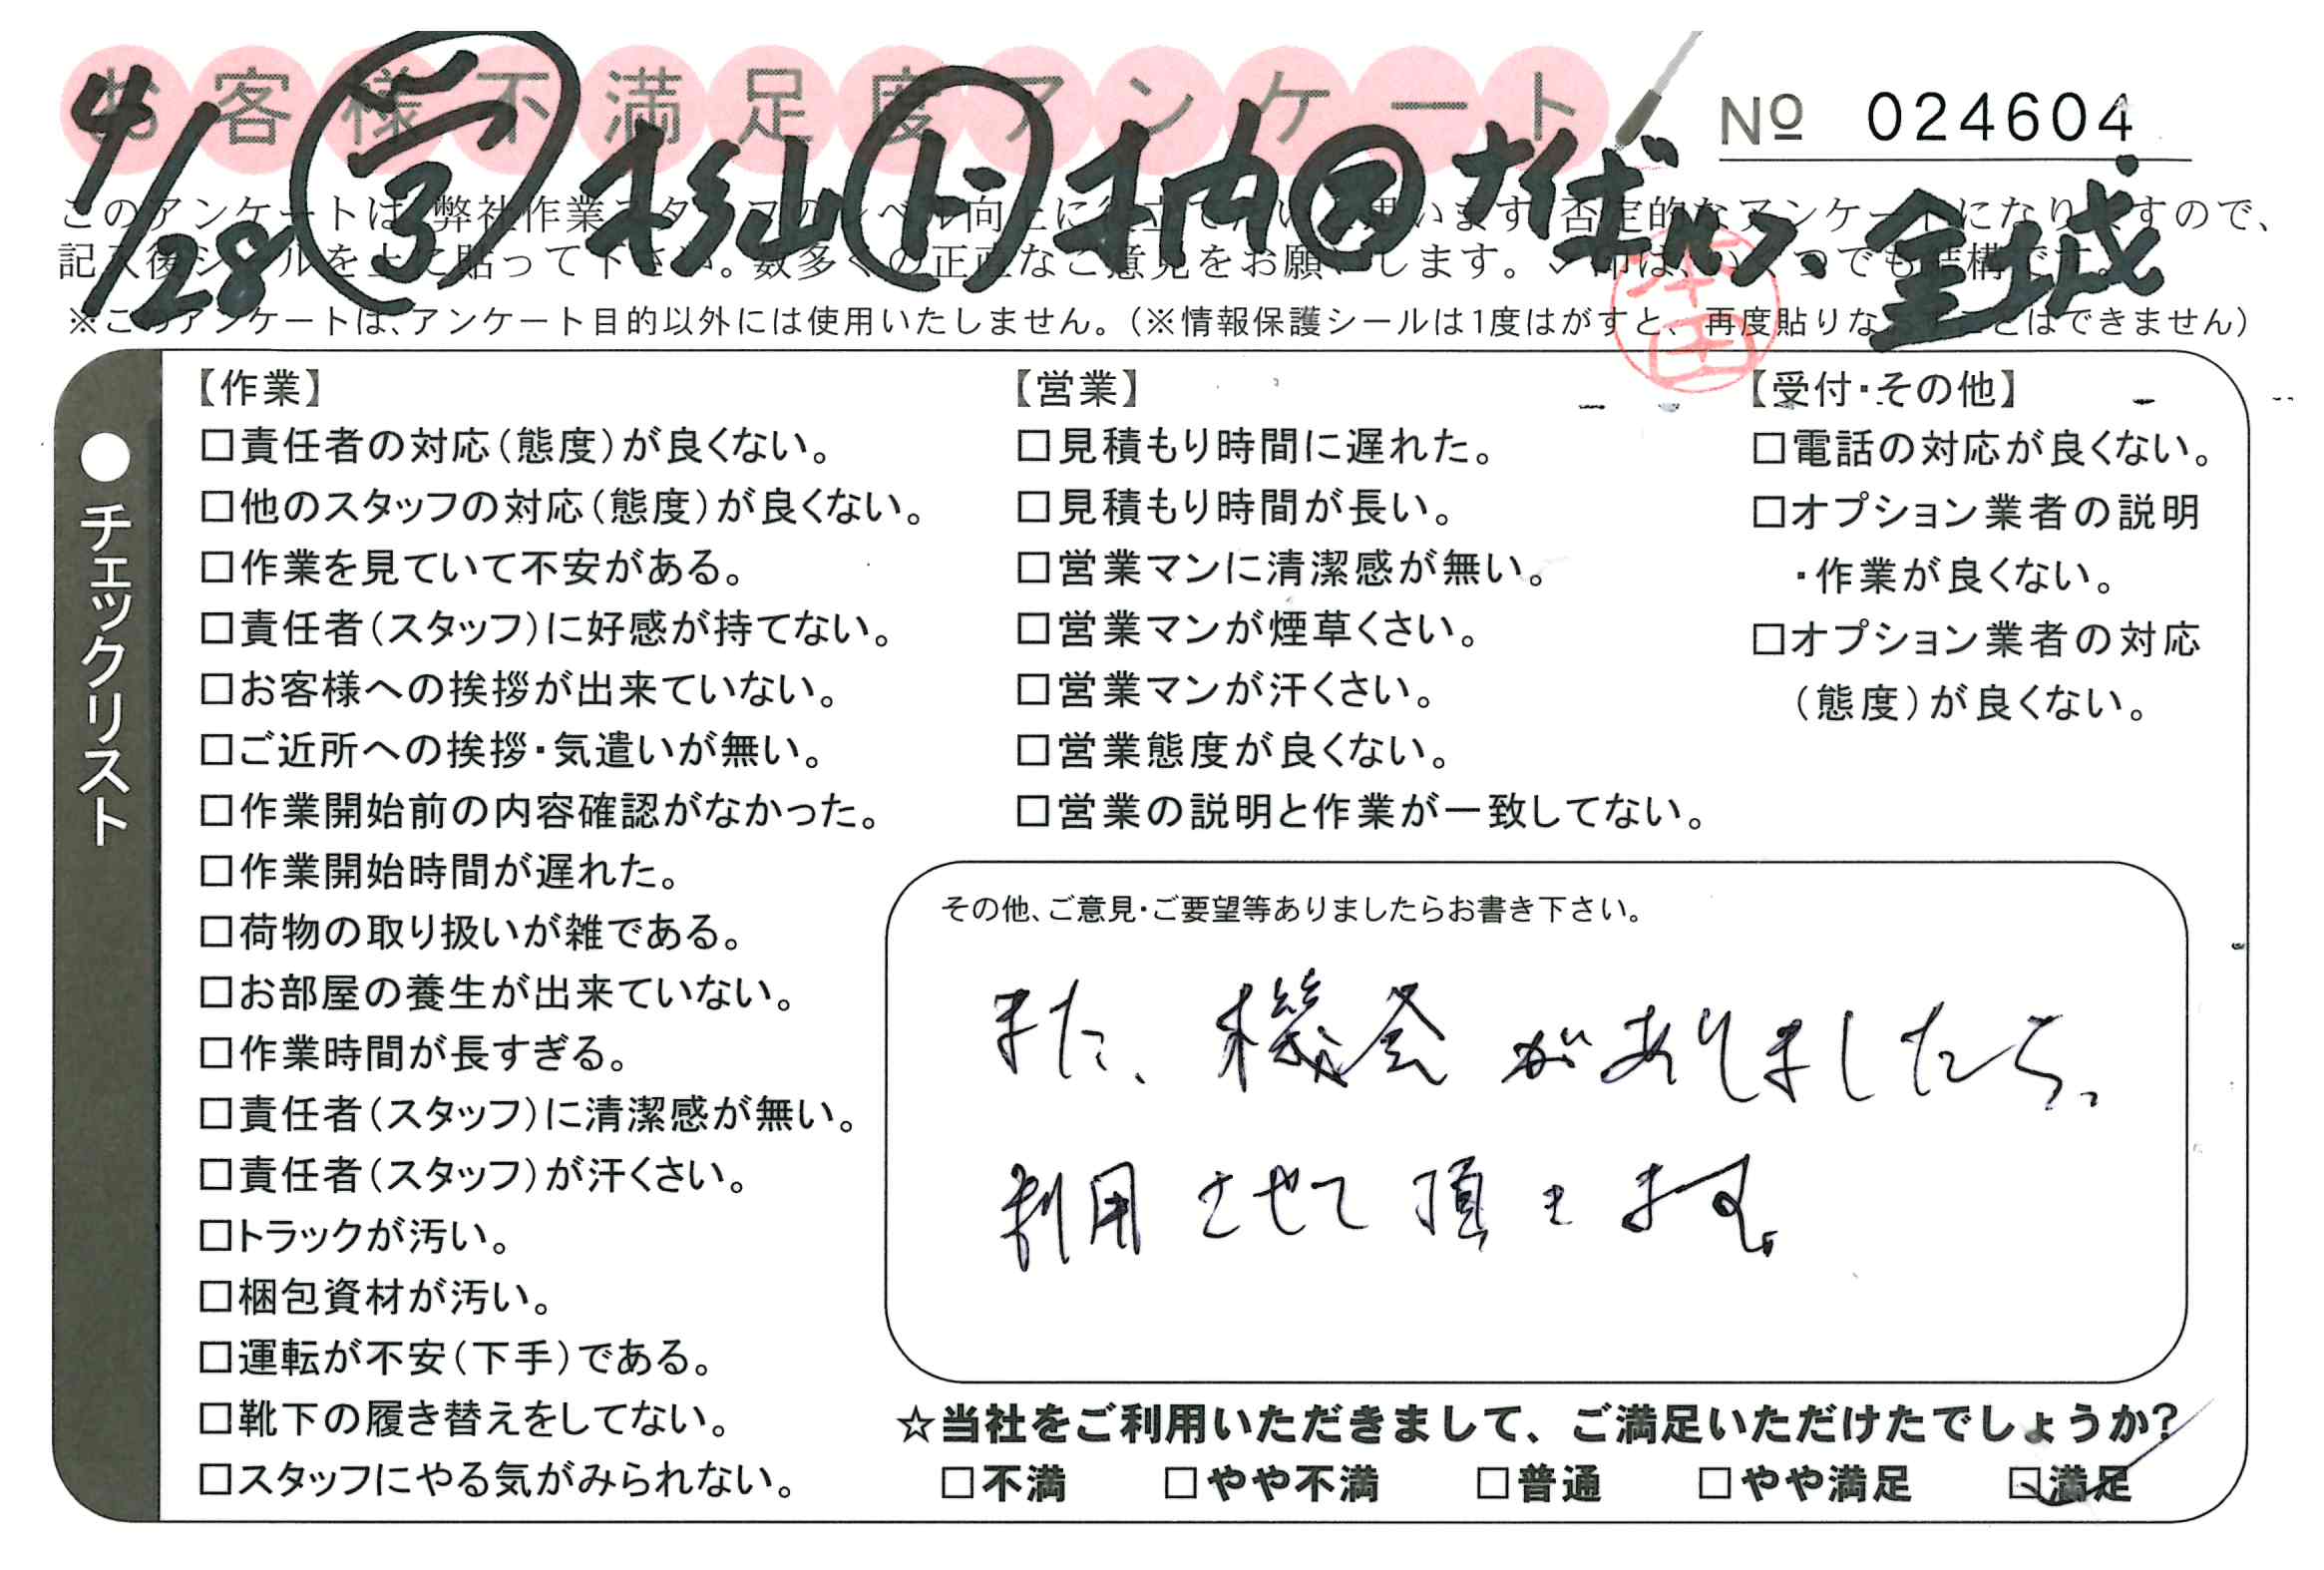 お客様不満足度アンケート
No 024604
4/28 杉山 ト 大城 金城
このアンケートは、弊社作業スタッフのレベル向上に役立てたいと思います。否定的なアンケートになりますので、
記入後シールを上に貼って下さい。数多くの正直なご意見をお願いします。✓印は、いくつでも結構です。
※このアンケートは、アンケート目的以外には使用いたしません。（※情報保護シールは1度はがすと、再度貼りなおすことはできません）
本田
●チェックリスト
【作業】
□責任者の対応（態度）が良くない。
□他のスタッフの対応（態度）が良くない。
□作業を見ていて不安がある。
□責任者（スタッフ）に好感が持てない。
□お客様への挨拶が出来ていない。
□ご近所への挨拶・気遣いが無い。
□作業開始前の内容確認がなかった。
□作業開始時間が遅れた。
□荷物の取り扱いが雑である。
□お部屋の養生が出来ていない。
□作業時間が長すぎる。
□責任者（スタッフ）に清潔感が無い。
□責任者（スタッフ）が汗くさい。
□トラックが汚い。
□梱包資材が汚い。
□運転が不安（下手）である。
□靴下の履き替えをしてない。
□スタッフにやる気がみられない。
【営業】
□見積もり時間に遅れた。
□見積もり時間が長い。
□営業マンに清潔感が無い。
□営業マンが煙草くさい。
□営業マンが汗くさい。
□営業態度が良くない。
□営業の説明と作業が一致してない。
【受付・その他】
□電話の対応が良くない。
□オプション業者の説明
・作業が良くない。
□オプション業者の対応
（態度）が良くない。
その他、ご意見・ご要望等ありましたらお書き下さい。
また、機会がありましたら、
利用させて頂きます。
☆当社をご利用いただきまして、ご満足いただけたでしょうか？
□不満 □やや不満 □普通 □やや満足 ☑満足